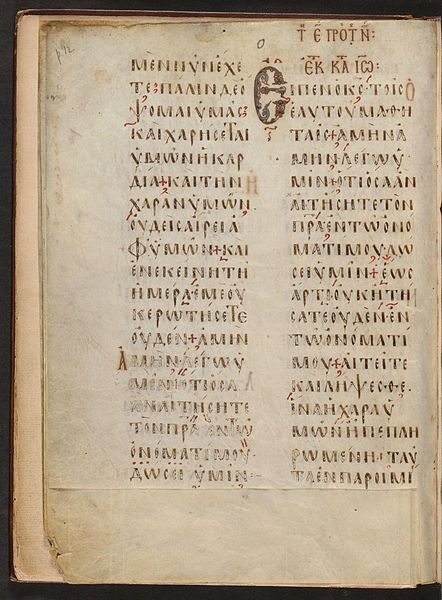 ΜΕΝΝΥΝΕΧΕ
ΤΕ ΠΑΛΙΝΔΕΟ
ΨΟΜΑΙΥΜΑϹ
ΚΑΙΧΑΡΗϹΕΤΑΙ
ΥΜΩΝΗΚΑΡ
ΔΙΑ+ΚΑΙΤΗΝ
ΧΑΡΑΝΥΜΩΝ
ΟΥΔΕΙϹΑΙΡΕΙΑ
ΦΥΜΩΝ+ΚΑΙ
ΕΝΕΚΕΙΝΗΤΗ
ΗΜΕΡΑΕΜΕΟΥ
ΚΕΡΩΤΗϹΕΤΕ
ΟΥΔΕΝ+ΑΜΗΝ
ΑΜΗΝΛΕΓΩΥ
ΜΙΝΟΤΙΟϹΑ
ΑΝΑΙΤΗϹΗΤΕ
ΤΟΝΠΡΑΕΝΤΩ
ΟΝΟΜΑΤΙΜΟΥ
ΔΩϹΕΙΥΜΙΝ
ΕΚ ΚΑΤΑ ΙΩ:
ΕΙΠΕΝΟΚϹΤΟΙϹ
ΕΑΥΤΟΥΜΑΘΗ
ΤΑΙϹ+ΑΜΗΝΑ
ΜΗΝΛΕΓΩΥ
ΜΙΝ+ΟΤΙΟϹΑΑΝ
ΑΙΤΗϹΗΤΕΤΟΝ
ΠΡΑΕΝΤΩΟΝΟ
ΜΑΤΙΜΟΥ ΔΩ
ϹΕΙΥΜΙΝ+ΕΩϹ
ΑΡΤΙΟΥΚΗΤΗ
ϹΑΤΕΟΥΔΕΝΕΝ
ΤΩΟΝΟΜΑΤΙ
ΜΟΥ+ΑΙΤΕΙΤΕ
ΚΑΙΛΗΨΕϹΘΕ
ΙΝΑΗΧΑΡΑΥ
ΜΩΝΗΠΕΠΛΗ
ΡΩΜΕΝΗ+ΤΑΥ
ΤΑΕΝΠΑΡΟΙΜΙ